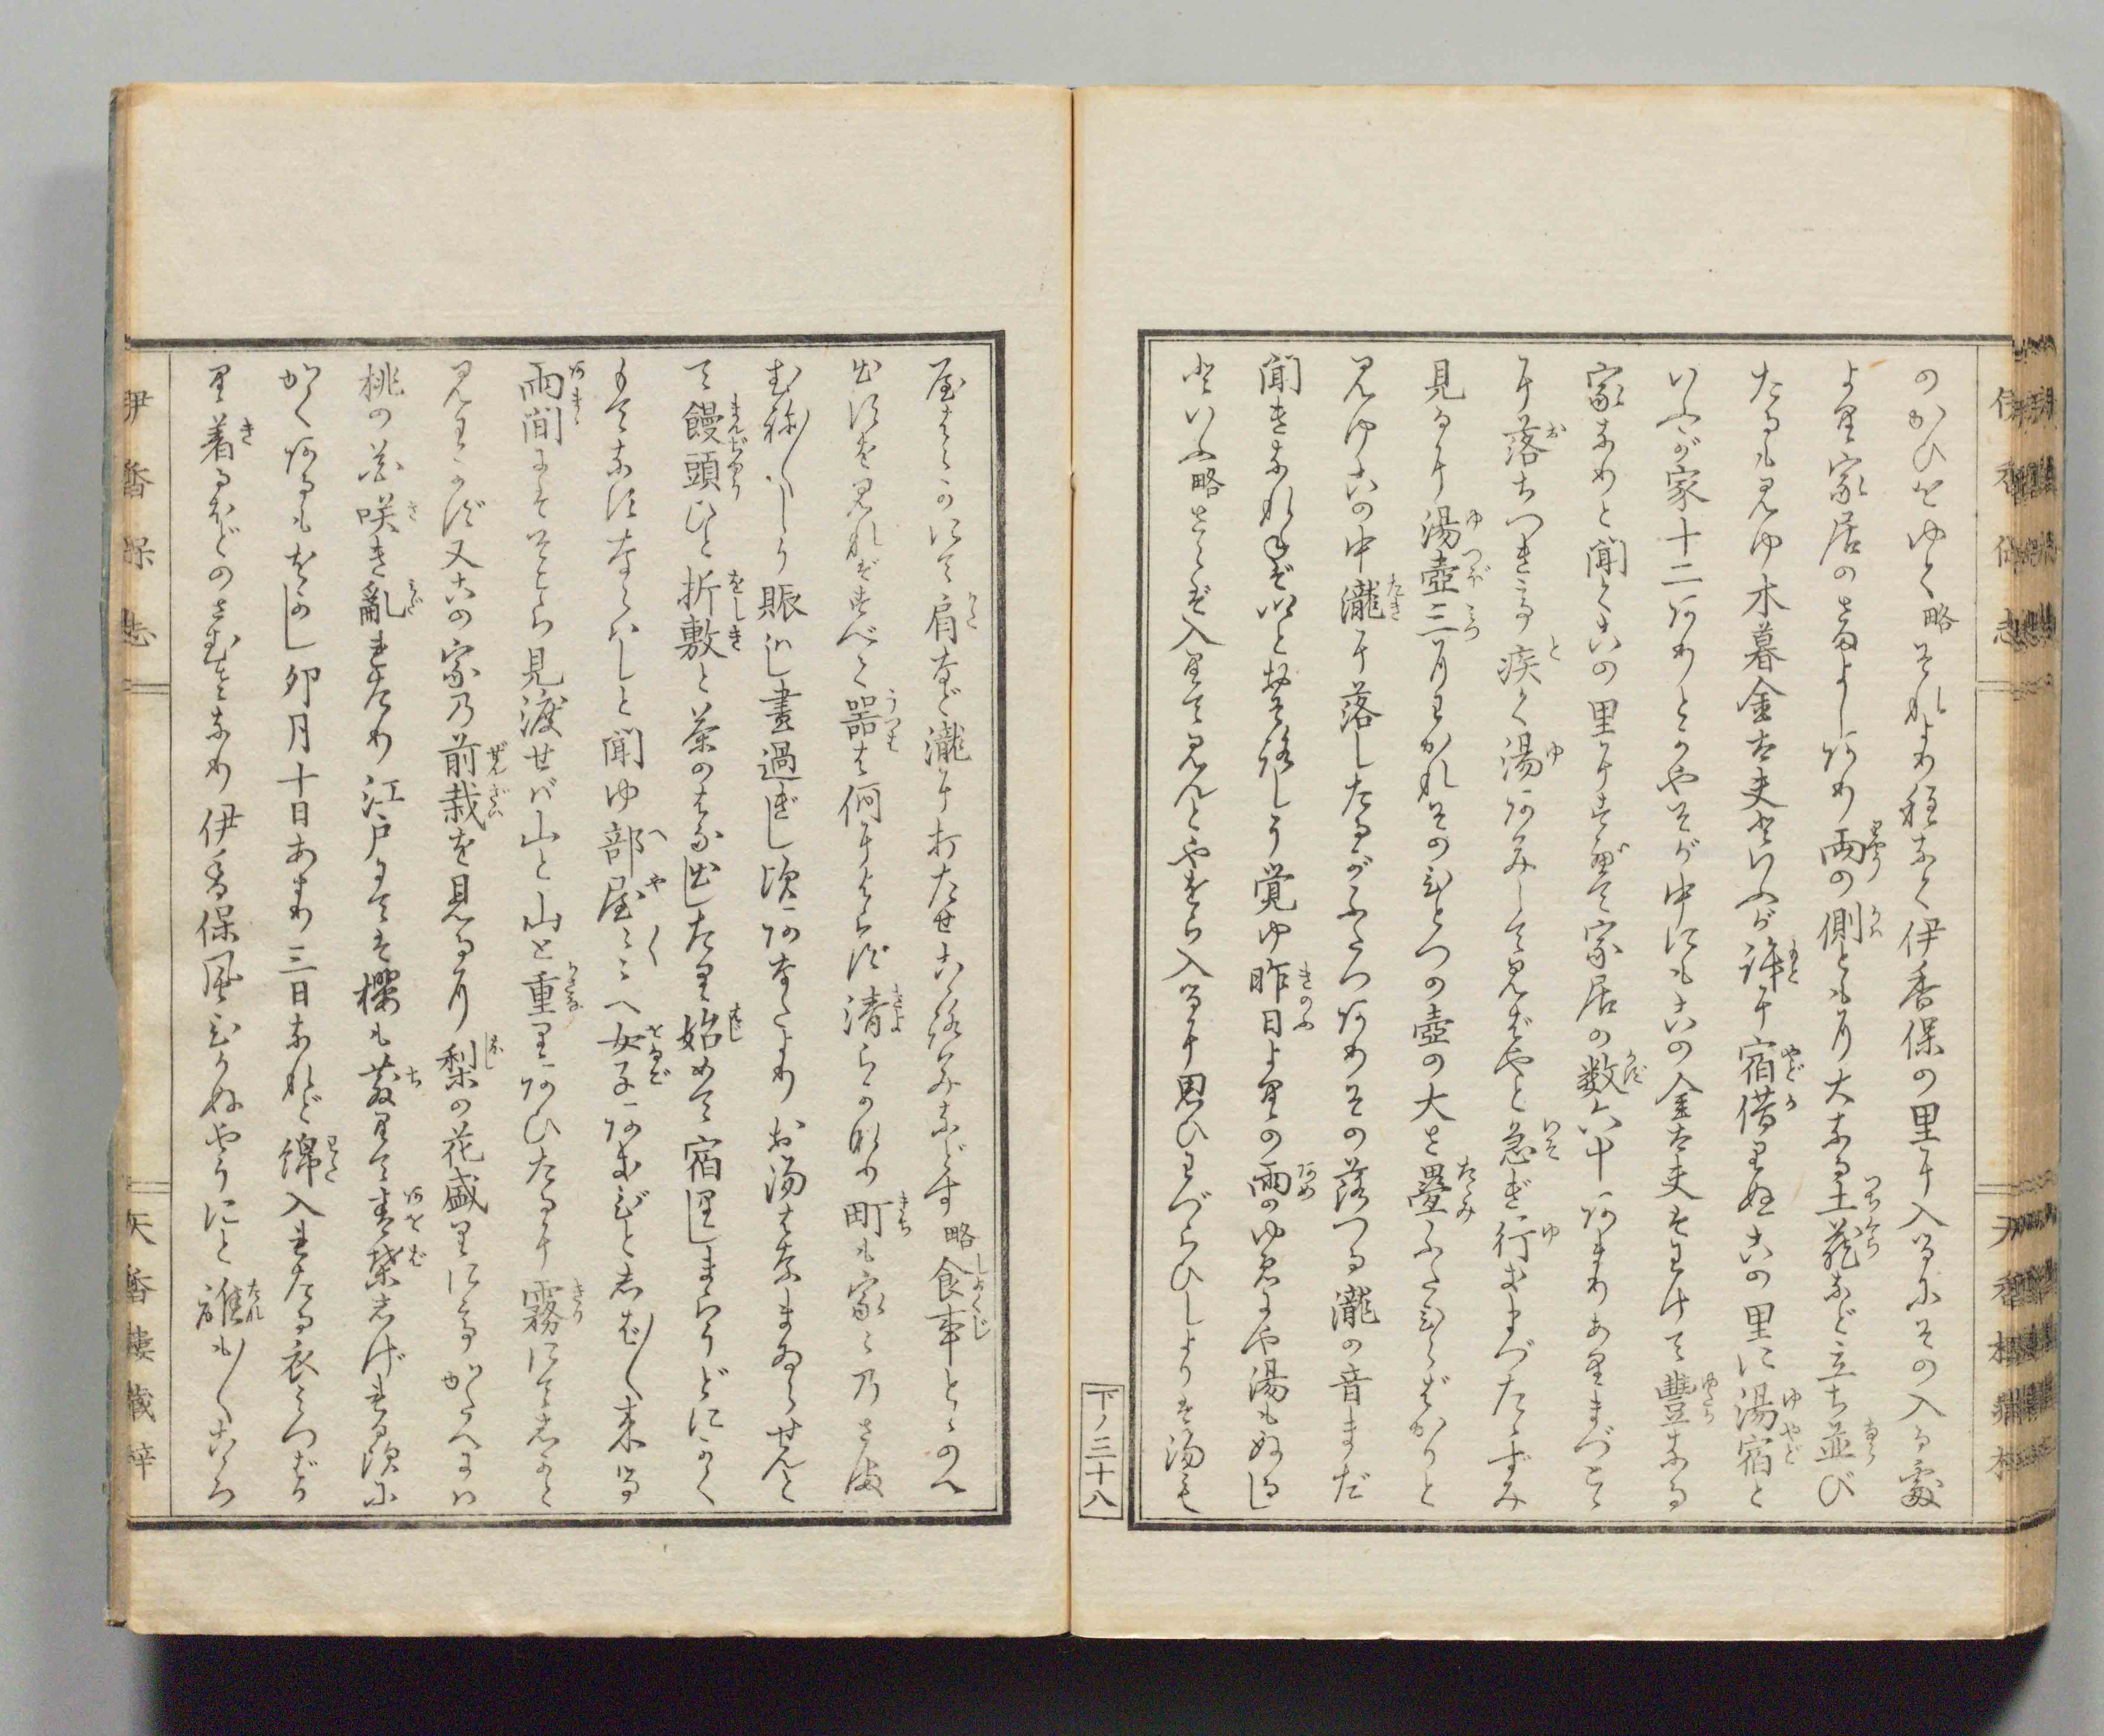 のかひをゆく略それより程なく伊香保の里に入るにその入る處
より家居のさまよしあり兩の側ともに大なる土藏など立ち並び
たるも見ゆ木暮金太夫といふが許に宿借りぬこの里に湯宿と
いふが家十二ありとかやそが中にもこの金太夫はわけて豐なる
家なりと聞くこの里にすべて家居の数六十あまりありまづここ
に落ちつきて疾く湯あみして見ばやと急ぎ行きまづたゝずみ
見るに湯壺三にわかれそのひとつの壺の大さ疊ふたひらばかりと
見ゆこの中瀧に落したるがふたつありその落つる瀧の音まだ
聞きなれねばいとおそろしう覚ゆ昨日よりの雨のゆゑにや湯もぬるし
といふ略さらば入りて見んとやをら入るに思ひわづらひしよりは湯も
屋はらかにて肩など瀧に打たせこゝろみなどす略食事とゝのへ
出すを見ればすべて器は何によらず清らかなり町も家々乃さま
むね〳〵しう賑はし晝過ぎし頃あなたよりお湯はなまゐらせんと
て饅頭ひと折敷と茶のはな出したり始めて宿りしまらうどにかく
もてなすならはしと聞ゆ部屋々々へ女子あきびとしば〳〵来る
雨間にはそこら見渡せば山と山と重りあひたるに霧にてしかと
見わかず又この家乃前栽を見るに梨の花盛りにてかたへには
桃の花咲き亂れたり江戸にては櫻も散りて青葉しげれる頃に
かくあるもをかし卯月十日あまり三日なれど綿入れたる衣三つばかり
り着るほどのさむさなり伊香保風ひかぬやうにと誰も〳〵こゝろ
伊香保志
天香樓藏梓
下ノ三十八